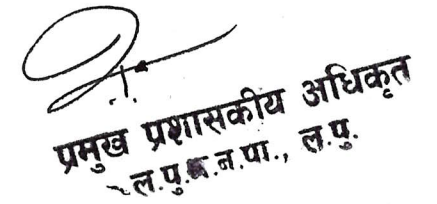 प्रमुख प्रशासकीय अधिकृत
ल.पु.म.न.पा., ल.पु.